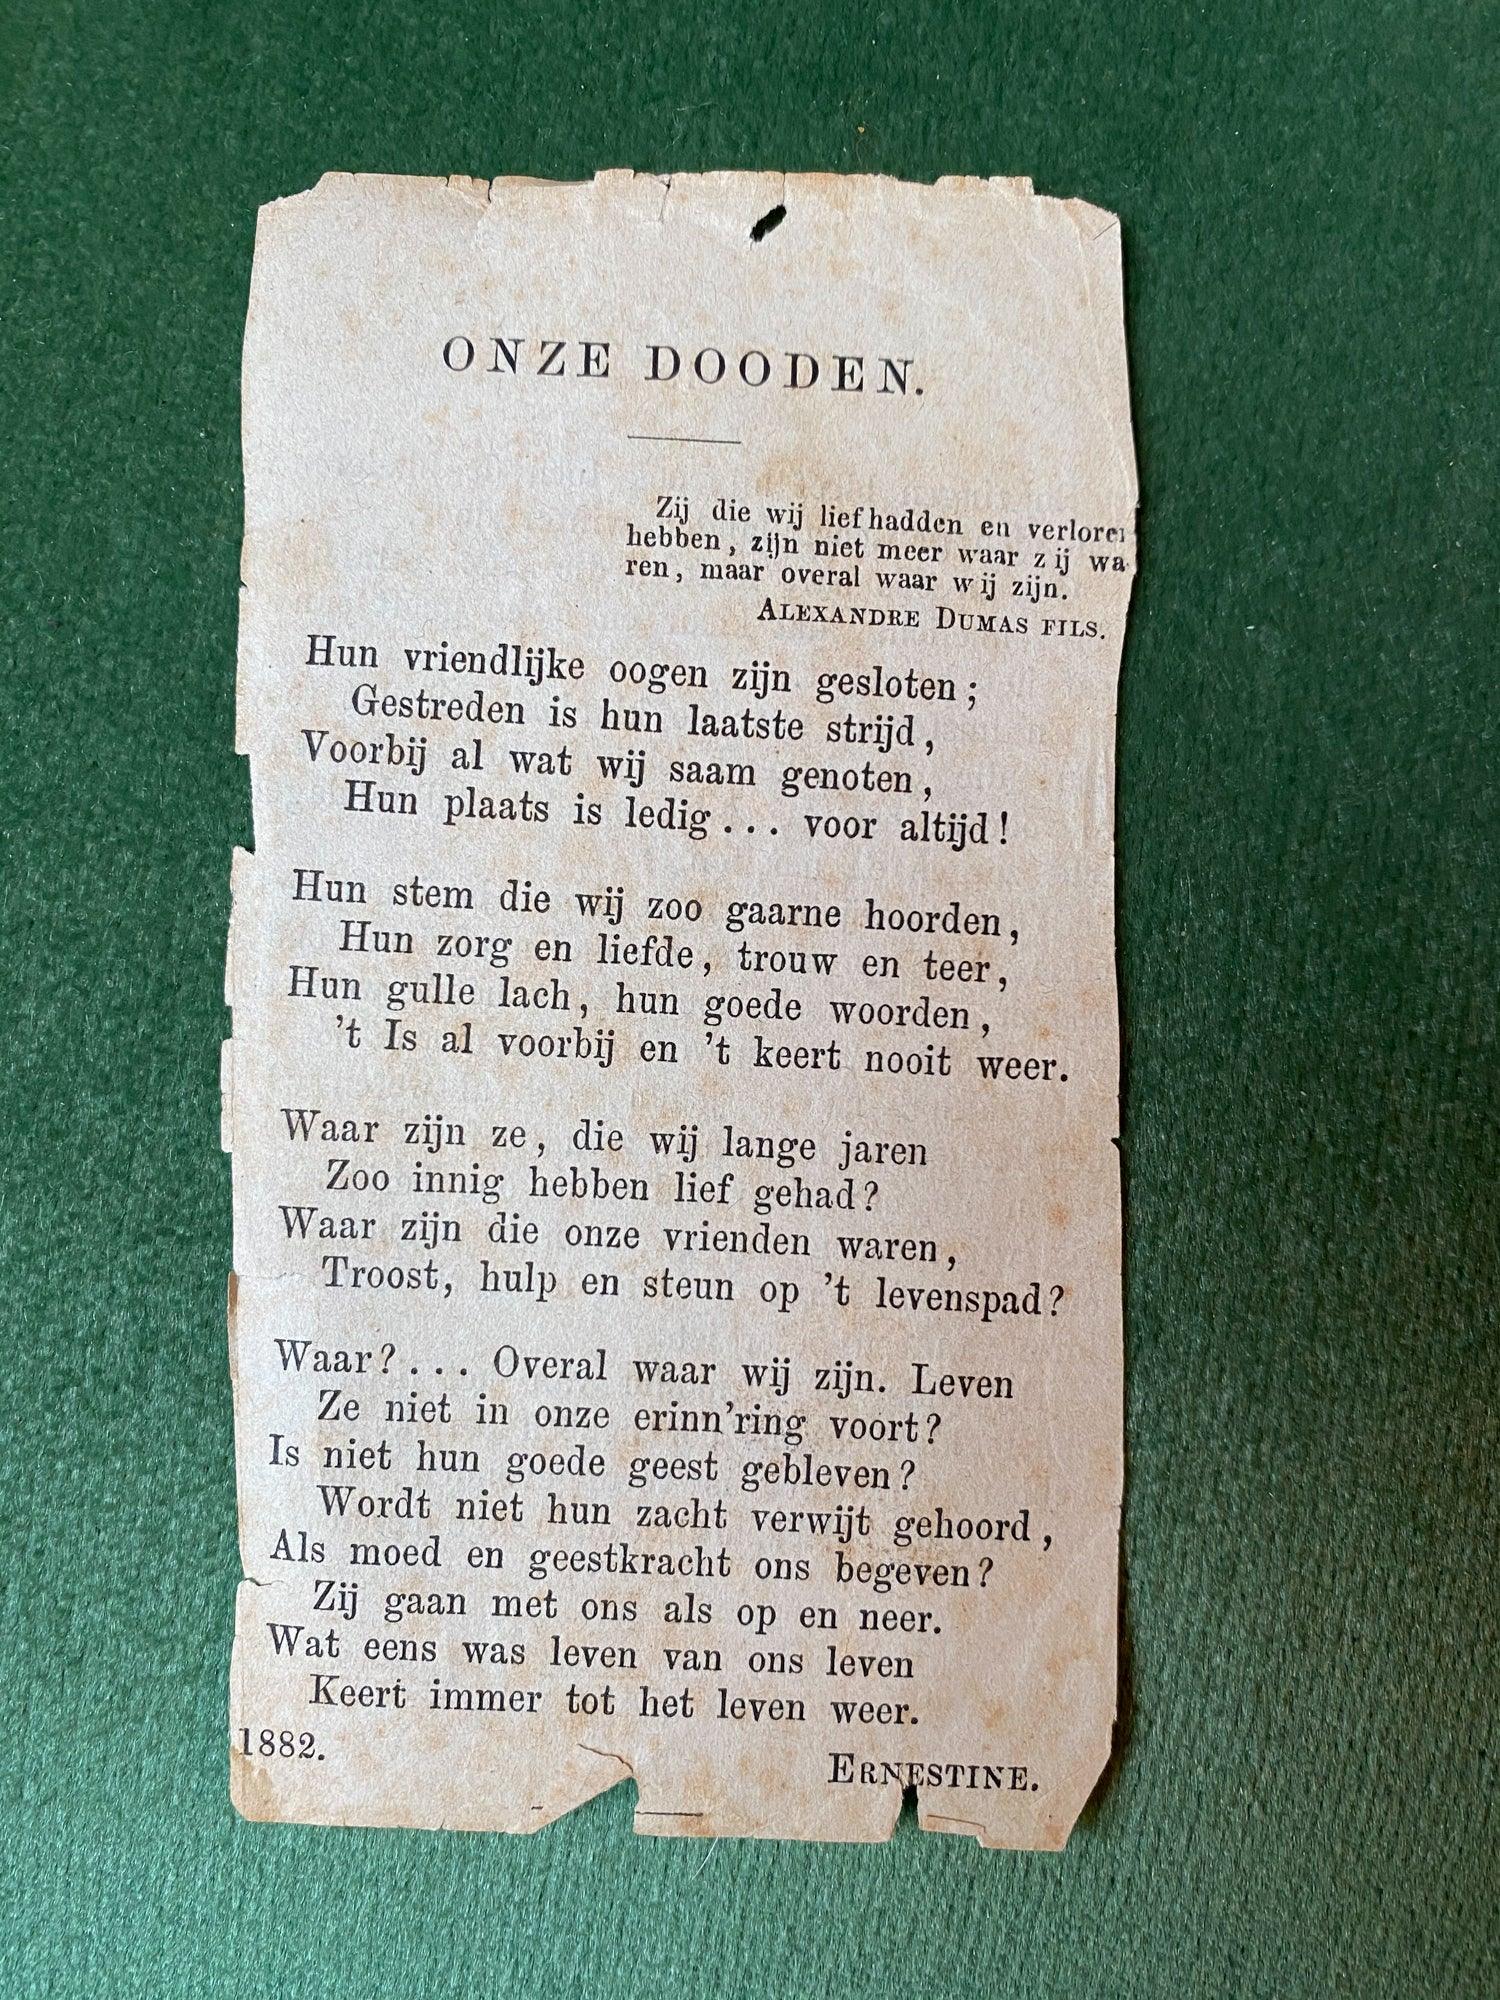 ONZE DOODEN.
Zij die wij lief hadden en verloren
hebben, zijn niet meer waar zij wa
ren, maar overal waar wij zijn.
ALEXANDRE DUMAS FILS.
Hun vriendlijke oogen zijn gesloten;
Gestreden is hun laatste strijd,
Voorbij al wat wij saam genoten,
Hun plaats is ledig... voor altijd!
Hun stem die wij zoo gaarne hoorden,
Hun zorg en liefde, trouw en teer,
Hun gulle lach, hun goede woorden,
't Is al voorbij en 't keert nooit weer.
Waar zijn ze, die wij lange jaren
Zoo innig hebben lief gehad?
Waar zijn die onze vrienden waren,
Troost, hulp en steun op 't levenspad?
Waar?... Overal waar wij zijn. Leven
Ze niet in onze erinn'ring voort?
Is niet hun goede geest gebleven?
Wordt niet hun zacht verwijt gehoord,
Als moed en geestkracht ons begeven?
Zij gaan met ons als op en neer.
Wat eens was leven van ons leven
Keert immer tot het leven weer.
1882.
ERNESTINE.